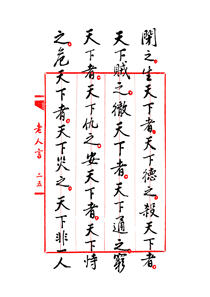 閉之生天下者天下德之殺天下者
天下賊之徹天下者天下通之窮
天下者天下仇之安天下者天下恃
之危天下者天下災之天下非一人
老人言 二五